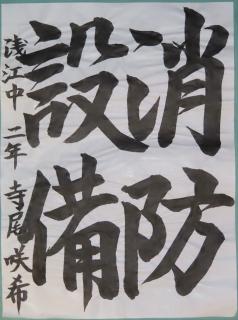 消防
設備
浅江中 二年 寺尾咲希